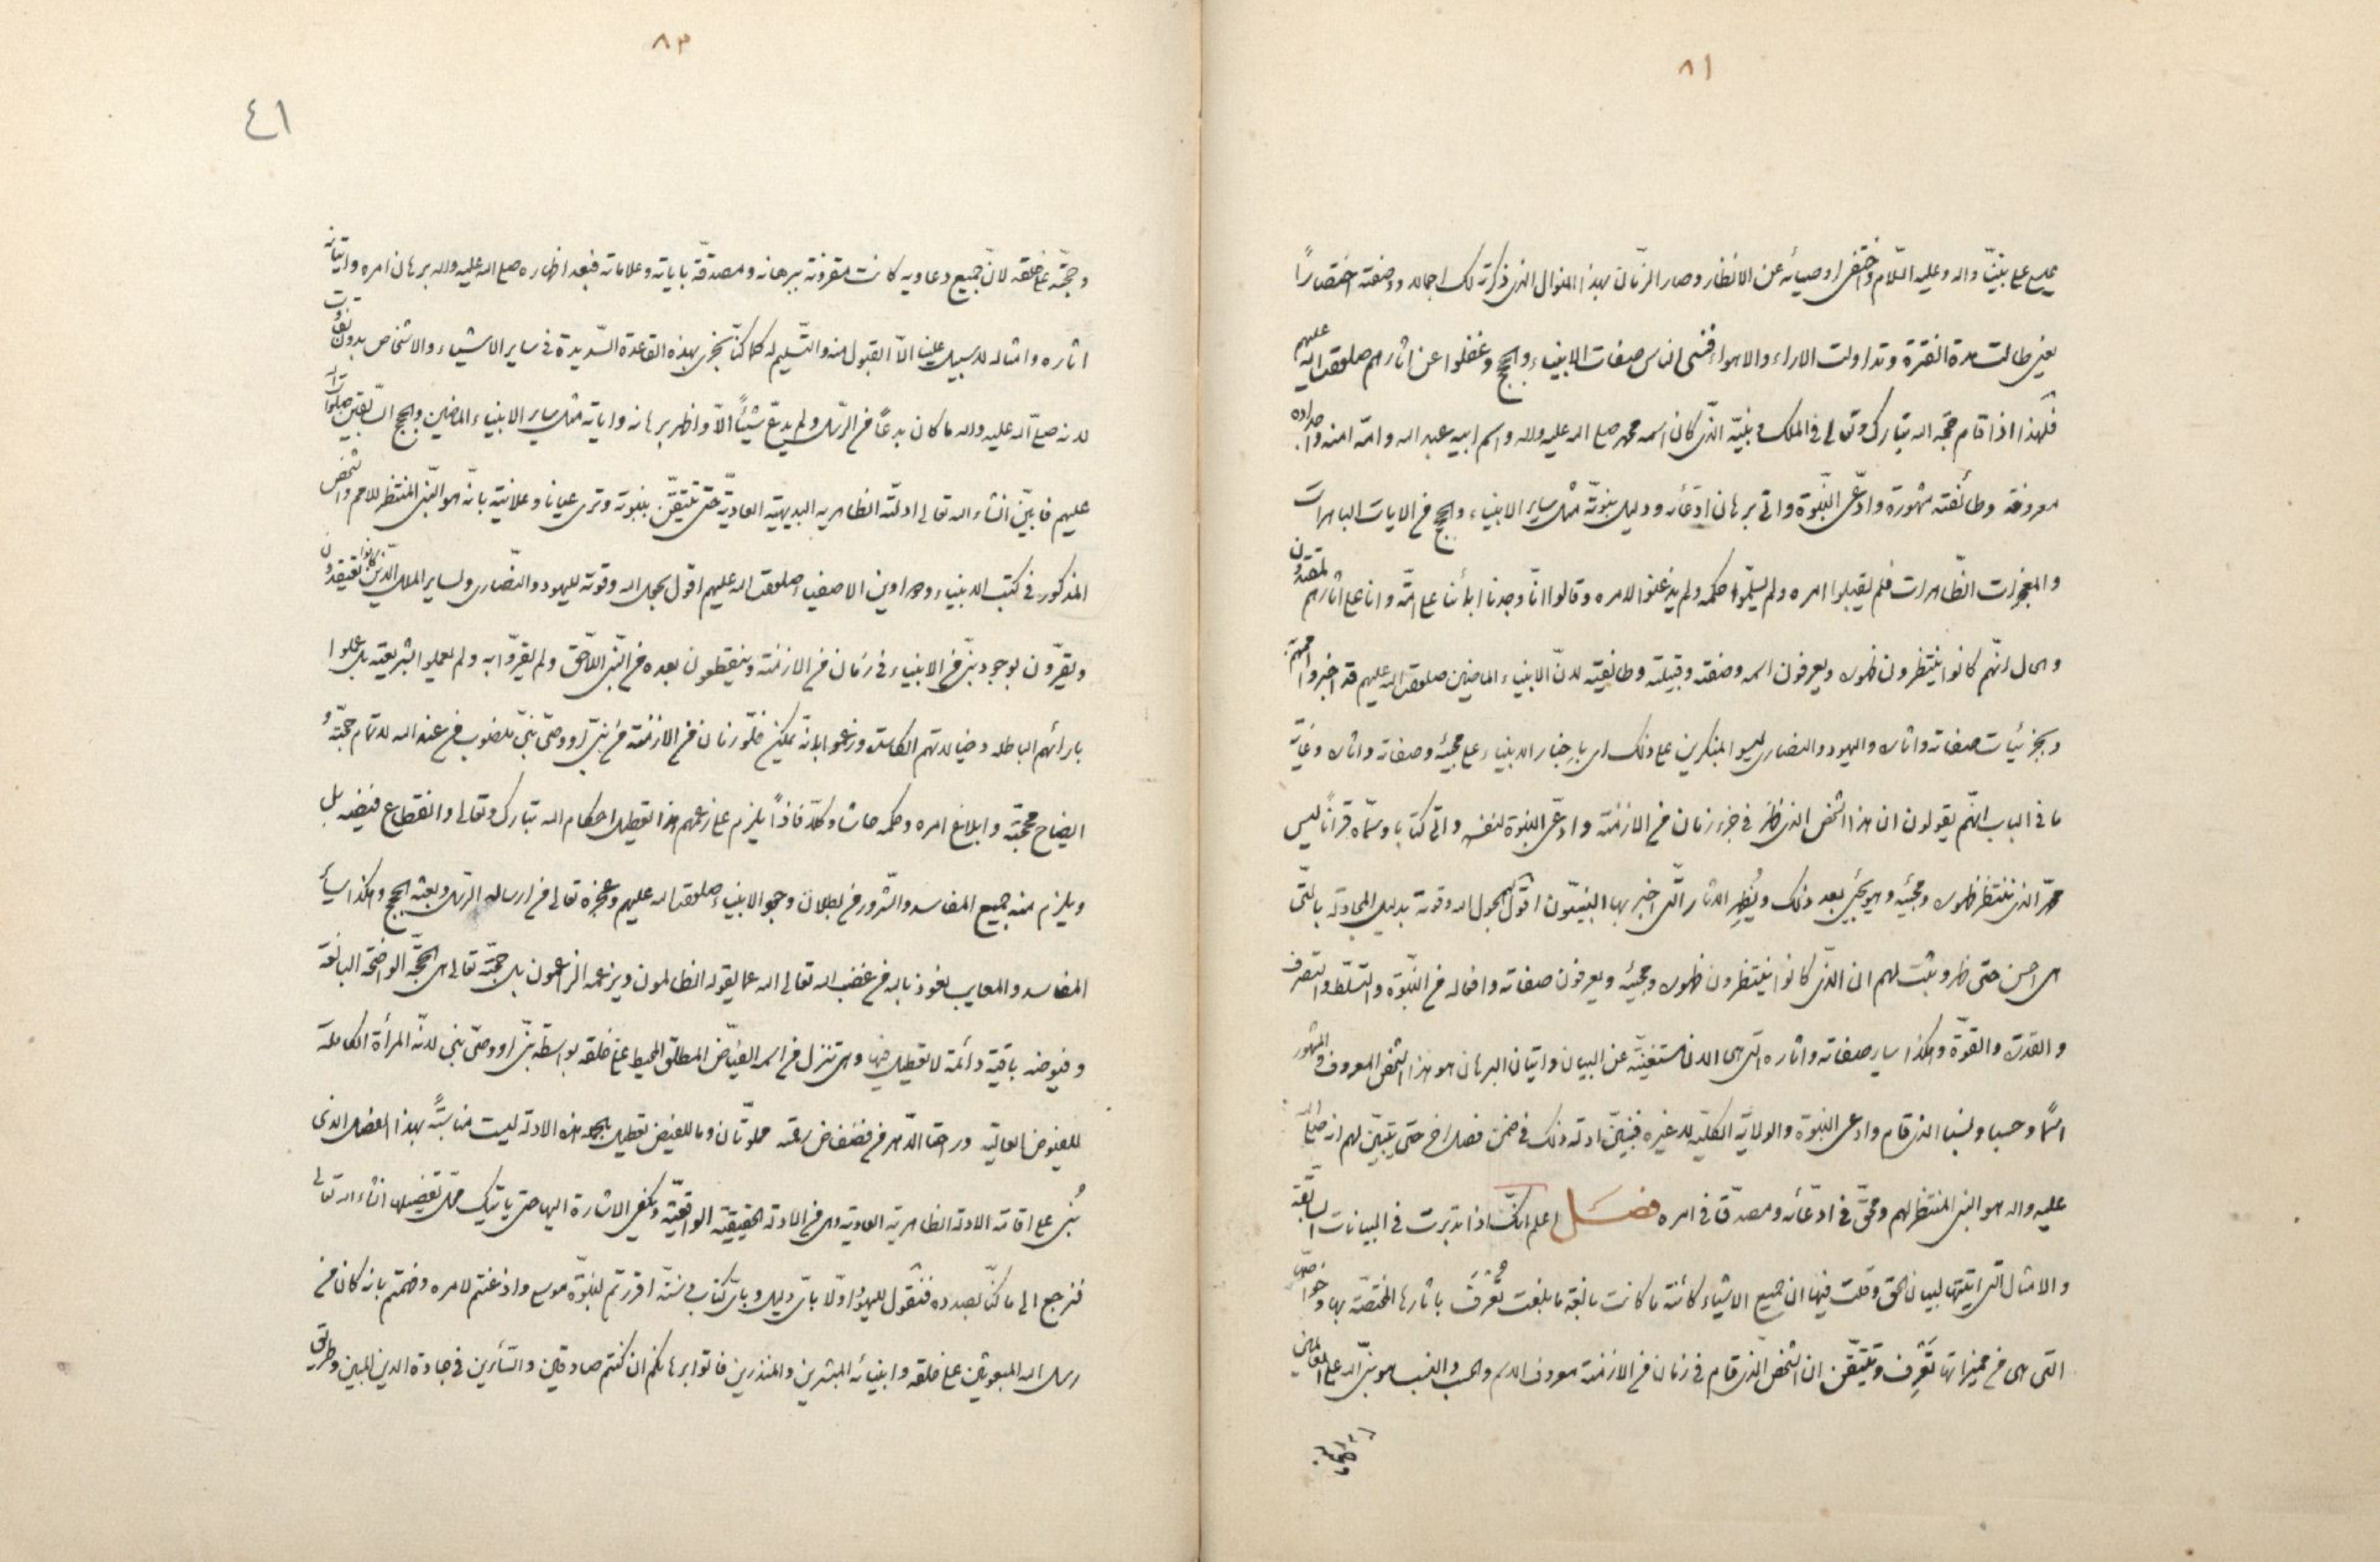 ٨١
عيسى على نبينا واله وعليه السلام واختفى اوصيائه عن الانظار وصار الزمان بهذا المنوال الذي ذكرته لك اجماله ووصفته اختصاراً
يعني طالت مدة الفترة وتداولت الاراء والاهواء فنسى الناس صفات الانبياء والحجج وغفلوا عن اثارهم صلوات الله عليهم
فلهذا اذا قام حجة الله تبارك وتعالى في الملك ونبيه الذي كان اسمه محمد صلى الله عليه واله واسم ابيه عبد الله وامه امنه واجداده
معروفة وطائفته مشهورة وادعى النبوة واتى برهان ادعائه ودليل نبوته مثل ساير الانبياء والحجج من الايات الباهرات
والمعجزات الظاهرات فلم يقبلوا امره ولم يسلموا حكمه ولم يذعنوا لامره وقالوا انا وجدنا ابائنا على امة وانا على اثارهم لمقتدون
والحال انهم كانوا ينتظرون ظهوره ويعرفون اسمه وصفته وقبيلته وطائفته لان الانبياء الماضين صلوات الله عليهم قد اخبروا اممهم
وبجزئيات صفاته واثاره واليهود والنصارى ليسوا المنكرين على ذلك اي باخبار الانبياء على مجيئه وصفاته واثاره وغاية
ما في الباب انهم يقولون ان هذا الشخص الذي ظهر في جزء زمان من الازمنة وادعى النبوة لنفسه واتى كتابا وسماه قرآناً ليس
محمد الذي ننتظر ظهوره ومجيئه وهو يجيئ بعد ذلك ويُظهِر الاثار التي اخبر بها النبيون اقول لهم بحول الله وقوته بدليل المجادلة بالتي
هي احسن حتى ظهر ويثبت لهم ان الذي كانوا ينتظرون ظهوره ومجيئه ويعرفون صفاته وافعاله من النبوة والتسلط والتصرف
والقدرة والقوة وهكذا ساير صفاته واثاره التي هي الان مستغنية عن البيان واتيان البرهان هو هذا الشخص المعروف المشهور
اسمًا وحسبا ونسبا الذي قام وادعى النبوة والولاية الكلية لا غيره فنبين ادلة ذلك في ضمن فصل اخر حتى يتبين لهم انه صلى الله
عليه واله هو النبي المنتظر لهم ومحق في ادعائه ومصدق في امره فصل اعلم انك اذا تدبرت في البيانات السابقة
والامثال التي اتيتها لبيان الحق وقلت فيها ان جميع الاشياء كائنة ما كانت بالغة ما بلغت تُعرَف باثارها المختصة بها وخواصها
التي هي من مميزاتها تعرف وتتيقن ان الشخص الذي قام في زمان من الازمنة معروف الاسم والحسب والنسب هو نبي الله على العالمين
٨٣
٤١
وحجته على خلقه لان جميع دعاويه كانت مقرونة ببرهانه ومصدقة باياته وعلاماته فبعد اظهاره صلى الله عليه واله برهان امره واتيانه
اثاره وامثاله لا سبيل علينا الا القبول منه والتسليم له كما كنا نجري بهذه القاعدة السديدة في ساير الاشياء والاشخاص بدون تفاوت
لانه صلى الله عليه واله ما كان بدعاً من الرسل ولم يدع شيئاً الا واظهر برهانه واياته مثل ساير الانبياء الماضين والحجج السابقين صلوات الله
عليهم فابين انشاء الله تعالى ادلته الظاهرية البديهية العادية حتى تتيقن بنبوته وترى عيانا وعلانية بانه هو النبي المنتظر للامم والشخص
المذكور في كتب الانبياء ودواوين الاصفياء صلوات الله عليهم اقول بحول الله وقوته لليهود والنصارى ولساير الملل الذين كانوا يعتقدون
ويقرون بوجود نبي من الانبياء في زمان من الازمنة وينقطعون بعده من النبي اللاحق ولم يقروا به ولم يعملوا بشريعته بل عملوا
بارائهم الباطلة وخيالاتهم الكاسدة وزعموا بانه يمكن خلو زمان من الازمنة من نبي او وصي نبي منصوب من عند الله لاتمام حجته و
ايضاح محجته وابلاغ امره وحكمه حاشا وكلا فاذاً يلزم على زعمهم هذا تعطيل احكام الله تبارك وتعالى وانقطاع فيضه بل
ويلزم منه جميع المفاسد والشرور من بطلان وجود الانبياء صلوات الله عليهم وعجزه تعالى من ارساله الرسل وبعثه الحجج وهكذا ساير
المفاسد والمعايب نعوذ بالله من غضب الله تعالى الله عما يقوله الظالمون ويزعمه الزاعمون بل حجته تعالى هي الحجة الواضحة البالغة
وفيوضه باقية دائمة لا تعطيل فيها وهي تنزل من اسمه الفياض المطلق المحيط على خلقه بواسطة نبي او وصي نبي لانه المرأة الكاملة
للفيوض العالية وراحتا الدهر من فضفاض رحمته مملوتان وما للفيض تعطيل هذه الادلة ليست مناسبة بهذا الفصل الذي
بُني على اقامة الادلة الظاهرية العادية وهي من الادلة الحقيقية الواقعية وتكفي الاشارة اليها حتى ياتيك محل تفصيلها انشاء الله تعالى
فنرجع الى ما كنا بصدده فنقول لليهود اولا باي دليل وباي كتاب وسنة اقررتم لنبوة موسى واذعنتم لامره وفهمتم بانه كان من
رسل الله المبعوثين على خلقه وانبيائه المبشرين والمنذرين فاتوا برهانكم ان كنتم صادقين والسائرين في جادة الدين المبين وطريق